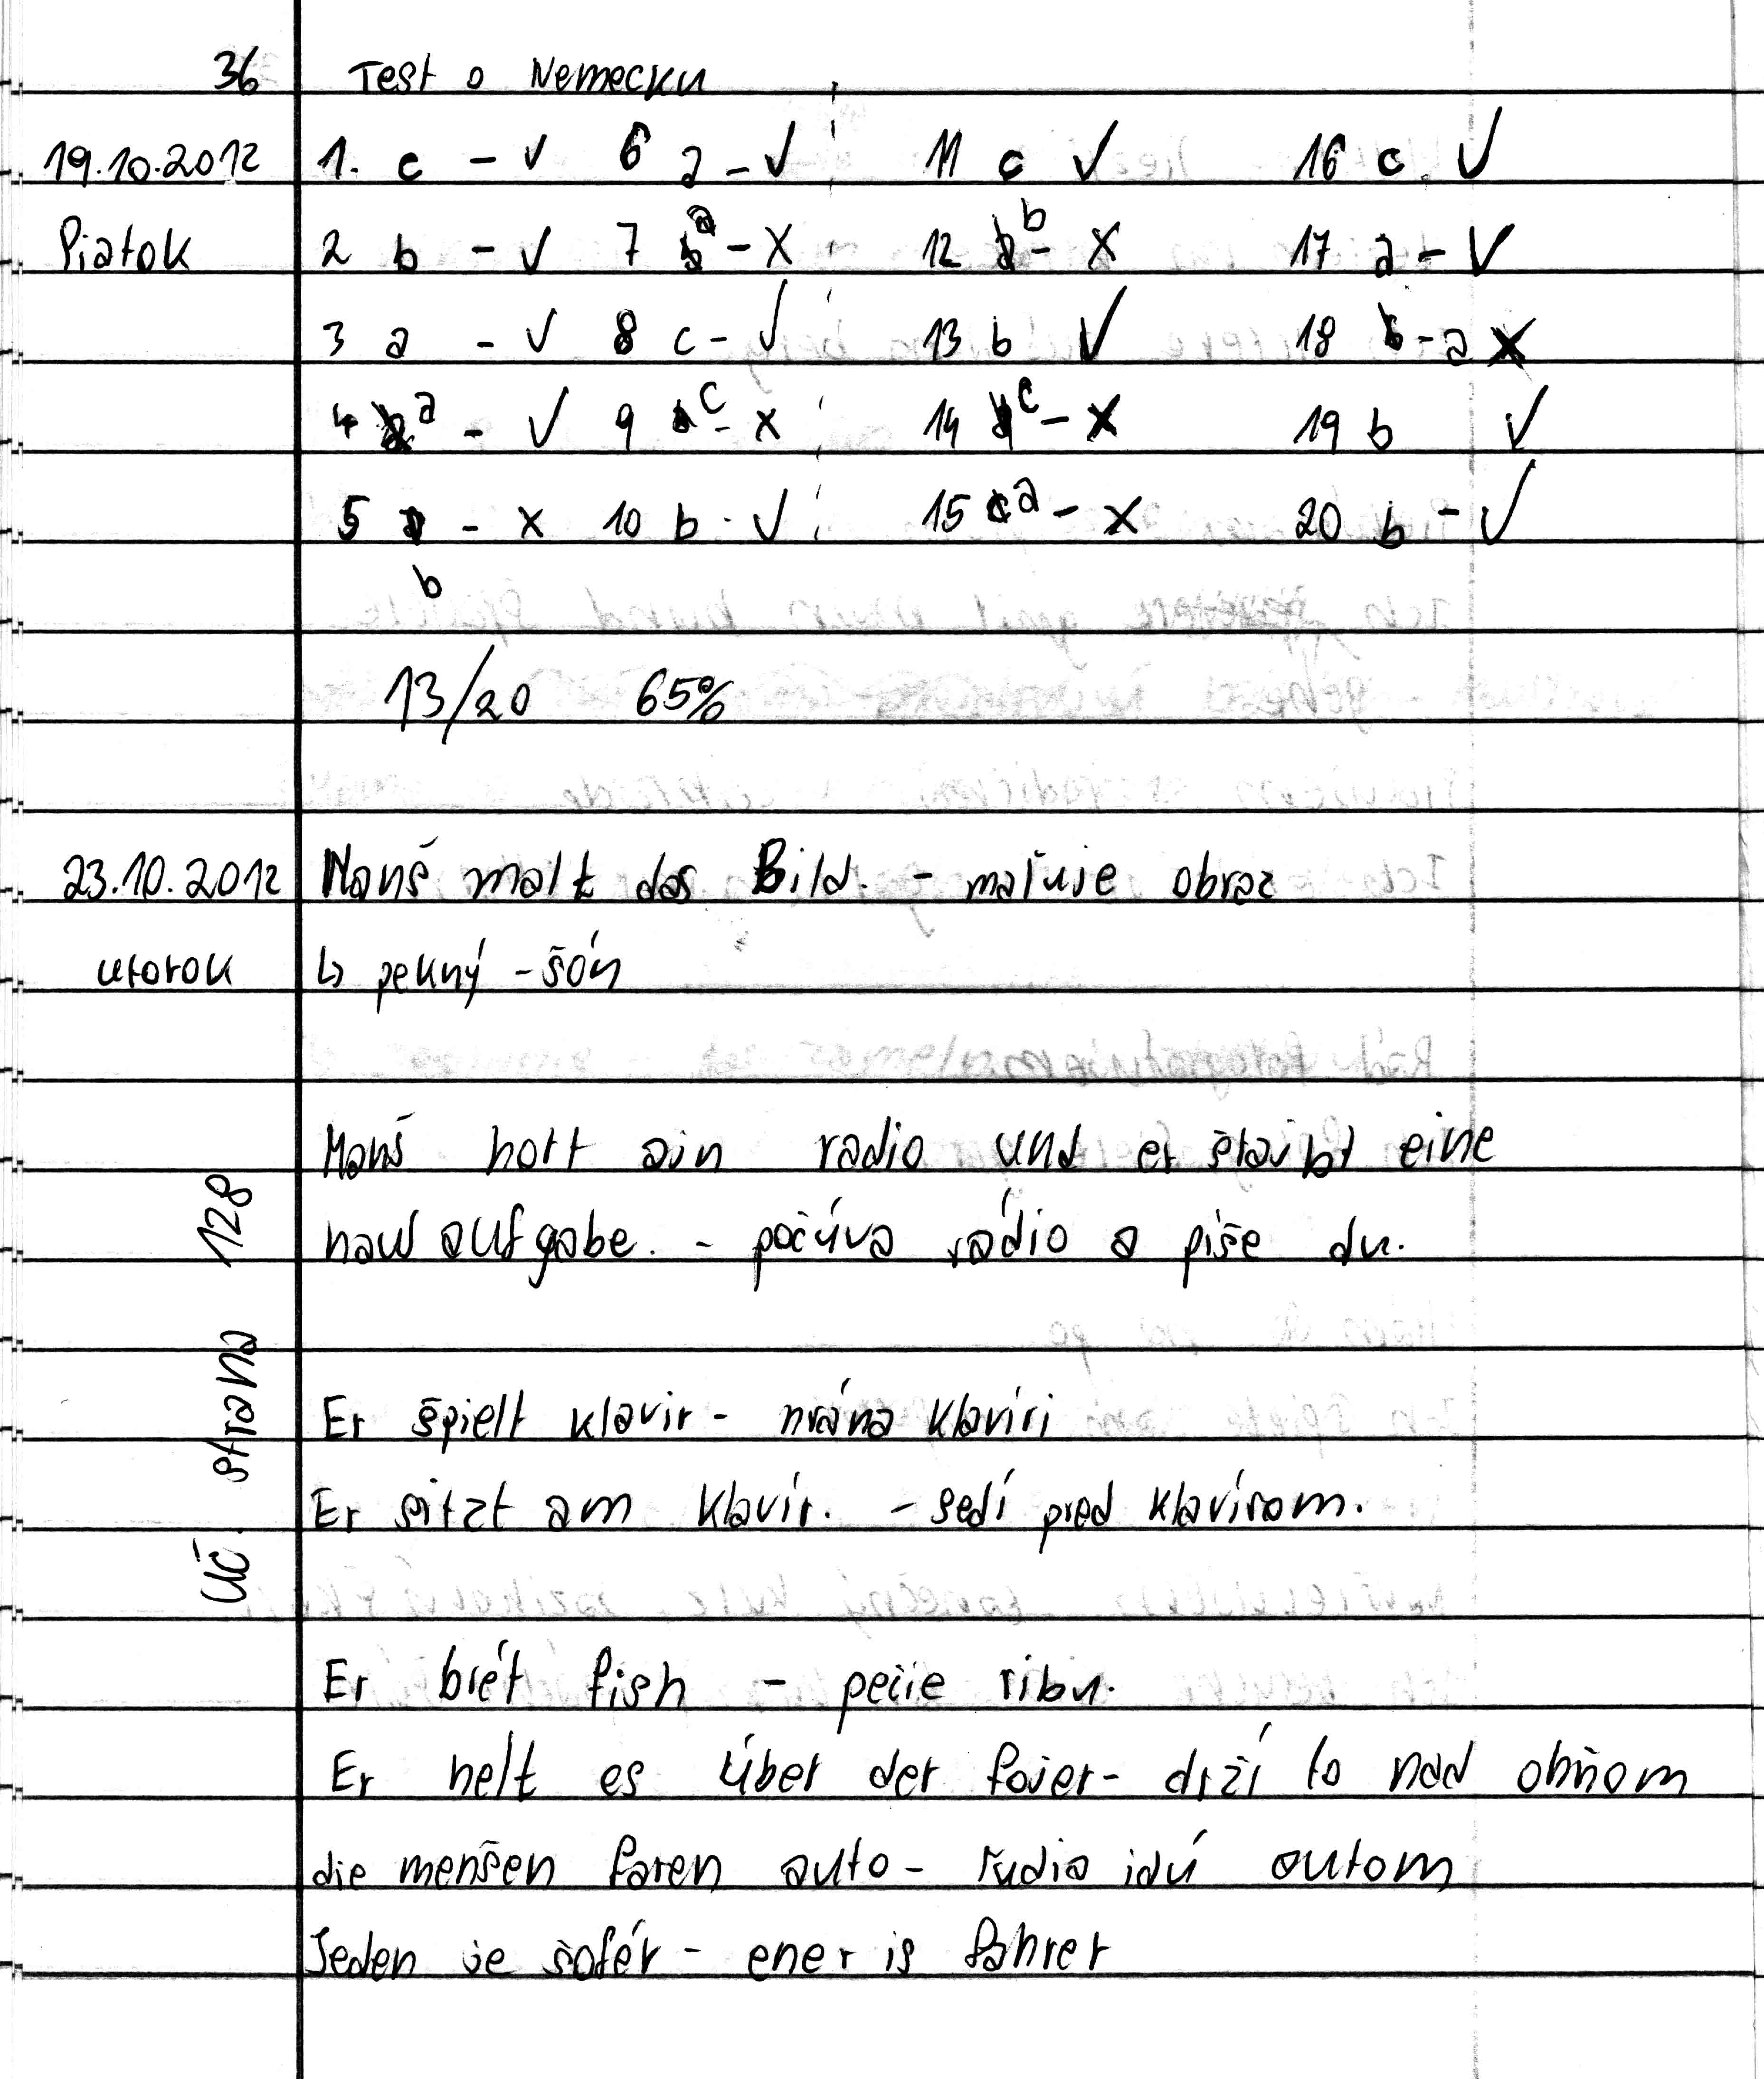 36 Test o Nemecku
19.10.2012 1. c - ✓ 6 a - ✓ 11 c ✓ 16 c ✓
Piatok 2 b - ✓ 7 a - X 12 b - X 17 a - ✓
3 a - ✓ 8 c - ✓ 13 b ✓ 18 b - a X
4 a - ✓ 9 c - X 14 c - X 19 b ✓
5 - X 10 b - ✓ 15 a - X 20 b - ✓
b
13/20 65%
23.10.2012 Manš malt das Bild. - maľuje obraz
utorok ↳ pekný - šón
Manš hört ain radio und er štaibt eine
haus aufgabe. - počúva rádio a píše du.
Er špielt klavir - hrá na klavíri
Er sitzt am klavír. - sedí pred klavírom.
Uč. strana 128
Er brét fish - pečie ribu.
Er helt es über der fojer - drží to nad ohňom
die menšen faren auto - ľudia idú autom
Jeden je šofér - ener is fahrer